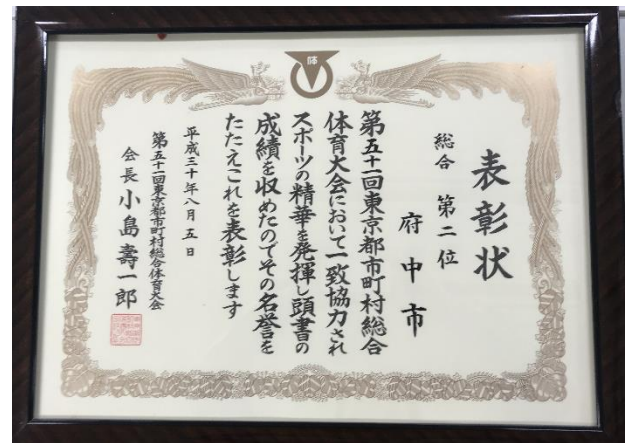 体
表彰状
総合 第二位
府中市
第五十一回東京都市町村総合
体育大会において一致協力され
スポーツの精華を発揮し頭書の
成績を収めたのでその名誉を
たたえこれを表彰します
平成三十年八月五日
第五十一回東京都市町村総合体育大会
会長 小島壽一郎